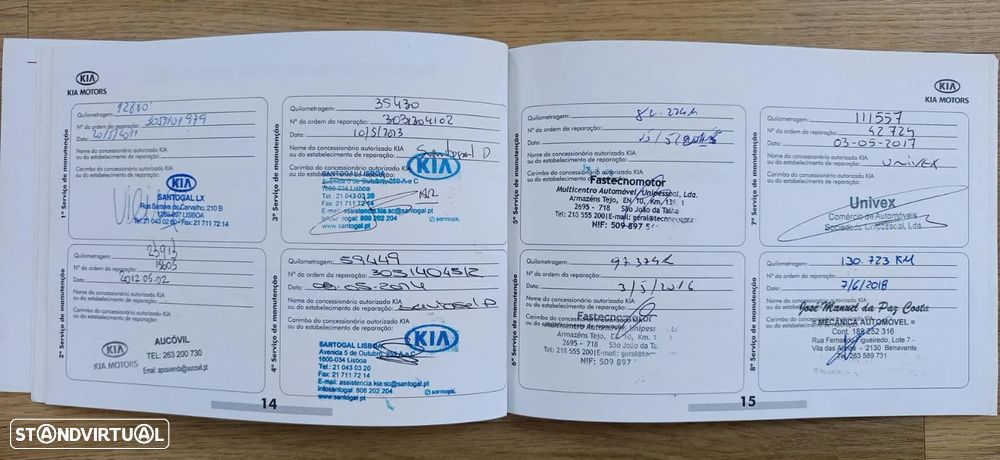 KIA
KIA MOTORS
1º Serviço de manutenção
Quilometragem: 12880
Nº da ordem da reparação: 3051101979
Data: 20/5/2011
Nome do concessionário autorizado KIA
ou do estabelecimento de reparação:
Carimbo do concessionário autorizado KIA
ou do estabelecimento de reparação:
KIA
SANTOGAL LX
Rua Saraiva de Carvalho, 210 B
LISBOA
2º Serviço de manutenção
Quilometragem: 23913
Nº da ordem da reparação:
Data: 2012.05.02
Nome do concessionário autorizado KIA
ou do estabelecimento de reparação:
Carimbo do concessionário autorizado KIA
ou do estabelecimento de reparação:
KIA
KIA MOTORS
AUCÓVIL
TEL: 263 200 730
3º Serviço de manutenção
Quilometragem: 35430
Nº da ordem da reparação: 3031304102
Data:
Nome do concessionário autorizado KIA
ou do estabelecimento de reparação:
Carimbo do concessionário autorizado KIA
ou do estabelecimento de reparação:
KIA
SANTOGAL LISBOA
Avenida 5 de Outubro, 250 A e C
1600-034 Lisboa
Tel.: 21 043 03 20
Fax: 21 711 72 14
E-mail: assistencia.kia.sc@santogal.pt
www.santogal.pt
santogal
4º Serviço de manutenção
Quilometragem: 59449
Nº da ordem da reparação: 3031404512
Data: 08.05.2014
Nome do concessionário autorizado KIA
ou do estabelecimento de reparação:
Carimbo do concessionário autorizado KIA
ou do estabelecimento de reparação:
KIA
SANTOGAL LISBOA
Avenida 5 de Outubro,
1600-034 Lisboa
Tel.: 21 043 03 20
Fax: 21 711 72 14
infosantogal: 808 202 204
www.santogal.pt
santogal
14
KIA
KIA MOTORS
5º Serviço de manutenção
Quilometragem:
Nº da ordem da reparação:
Data:
Nome do concessionário autorizado KIA
ou do estabelecimento de reparação:
Carimbo do concessionário autorizado KIA
ou do estabelecimento de reparação:
Fastecnomotor
Multicentro Automóvel Unipessoal, Lda.
Armazéns Tejo, EN, 10, Km,
2695 - 718 São João da Talha
NIF: 509 897
6º Serviço de manutenção
Quilometragem:
Nº da ordem da reparação:
Data: 3/5/2016
Nome do concessionário autorizado KIA
ou do estabelecimento de reparação:
Carimbo do concessionário autorizado KIA
ou do estabelecimento de reparação:
Fastecnomotor
Armazéns Tejo,
2695 - 718 São João da
NIF: 509 897
7º Serviço de manutenção
Quilometragem: 111557
Nº da ordem da reparação: 42724
Data: 03-05-2017
Nome do concessionário autorizado KIA
ou do estabelecimento de reparação: univex
Carimbo do concessionário autorizado KIA
ou do estabelecimento de reparação:
Univex
Comércio de Automóveis
Sociedade Unipessoal, Lda.
8º Serviço de manutenção
Quilometragem: 130.723 KM
Nº da ordem da reparação:
Data: 7/6/2018
Nome do concessionário autorizado KIA
José Manuel da Paz Costa
MECÂNICA AUTOMÓVEL =
Cont. 188 252 316
Rua Fernando Figueiredo, Lote 7 -
Vila das Areias - 2130 Benavente
Tel. 263 589 731
15
STANDVIRTUAL